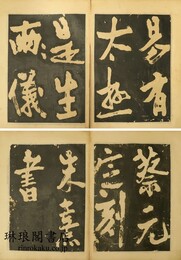 易有
太極
是生
兩儀
蔡元
定刻
朱熹
書
琳琅閣書店
rinrokaku.co.jp